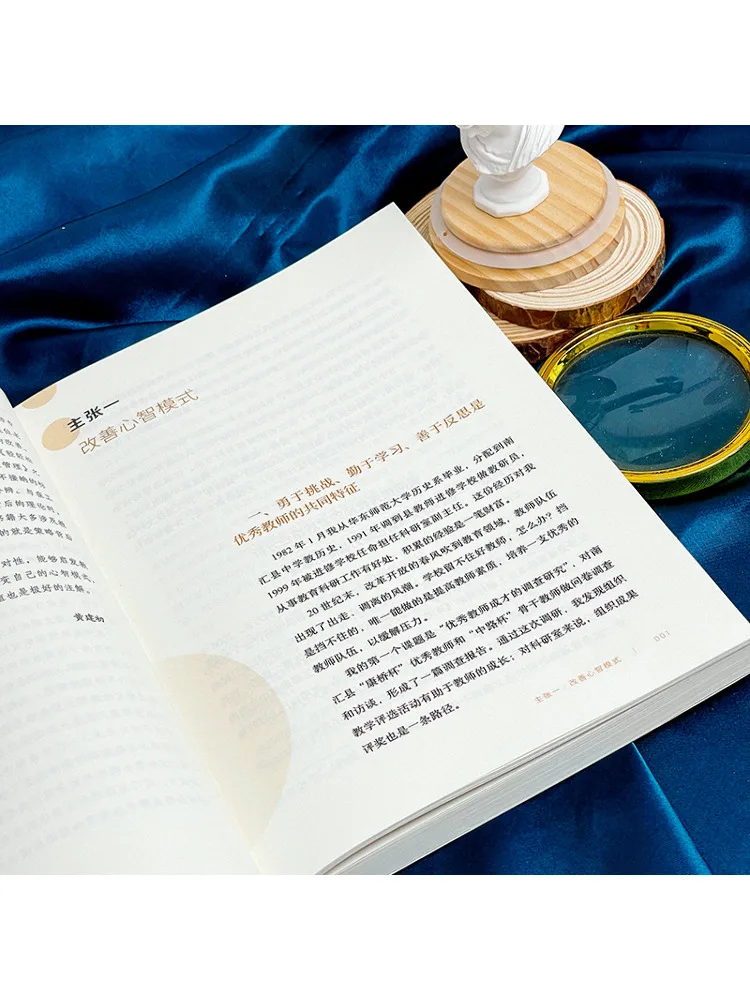 管理》之
书籍大多涉及教
对性，能够启发教
变自己的心智模式。
也是极好的注解。
黄建初
主张一
改善心智模式
一、勇于挑战、勤于学习、善于反思是
优秀教师的共同特征
1982 年 1 月我从华东师范大学历史系毕业，分配到南
汇县中学教历史，1991 年调到县教师进修学校做教研员，
1999 年被进修学校任命担任科研室副主任。这份经历对我
从事教育科研工作有好处，积累的经验是一笔财富。
20 世纪末，改革开放的春风吹到教育领域，教师队伍
出现了出走、调离的风潮。学校留不住好教师，怎么办？挡
是挡不住的，唯一能做的是提高教师素质，培养一支优秀的
教师队伍，以缓解压力。
我的第一个课题是“优秀教师成才的调查研究”，对南
汇县“康桥杯”优秀教师和“中路杯”骨干教师做问卷调查
和访谈，形成了一篇调查报告。通过这次调研，我发现组织
教学评选活动有助于教师的成长；对科研室来说，组织成果
评奖也是一条路径。
主张一 · 改善心智模式 | 001